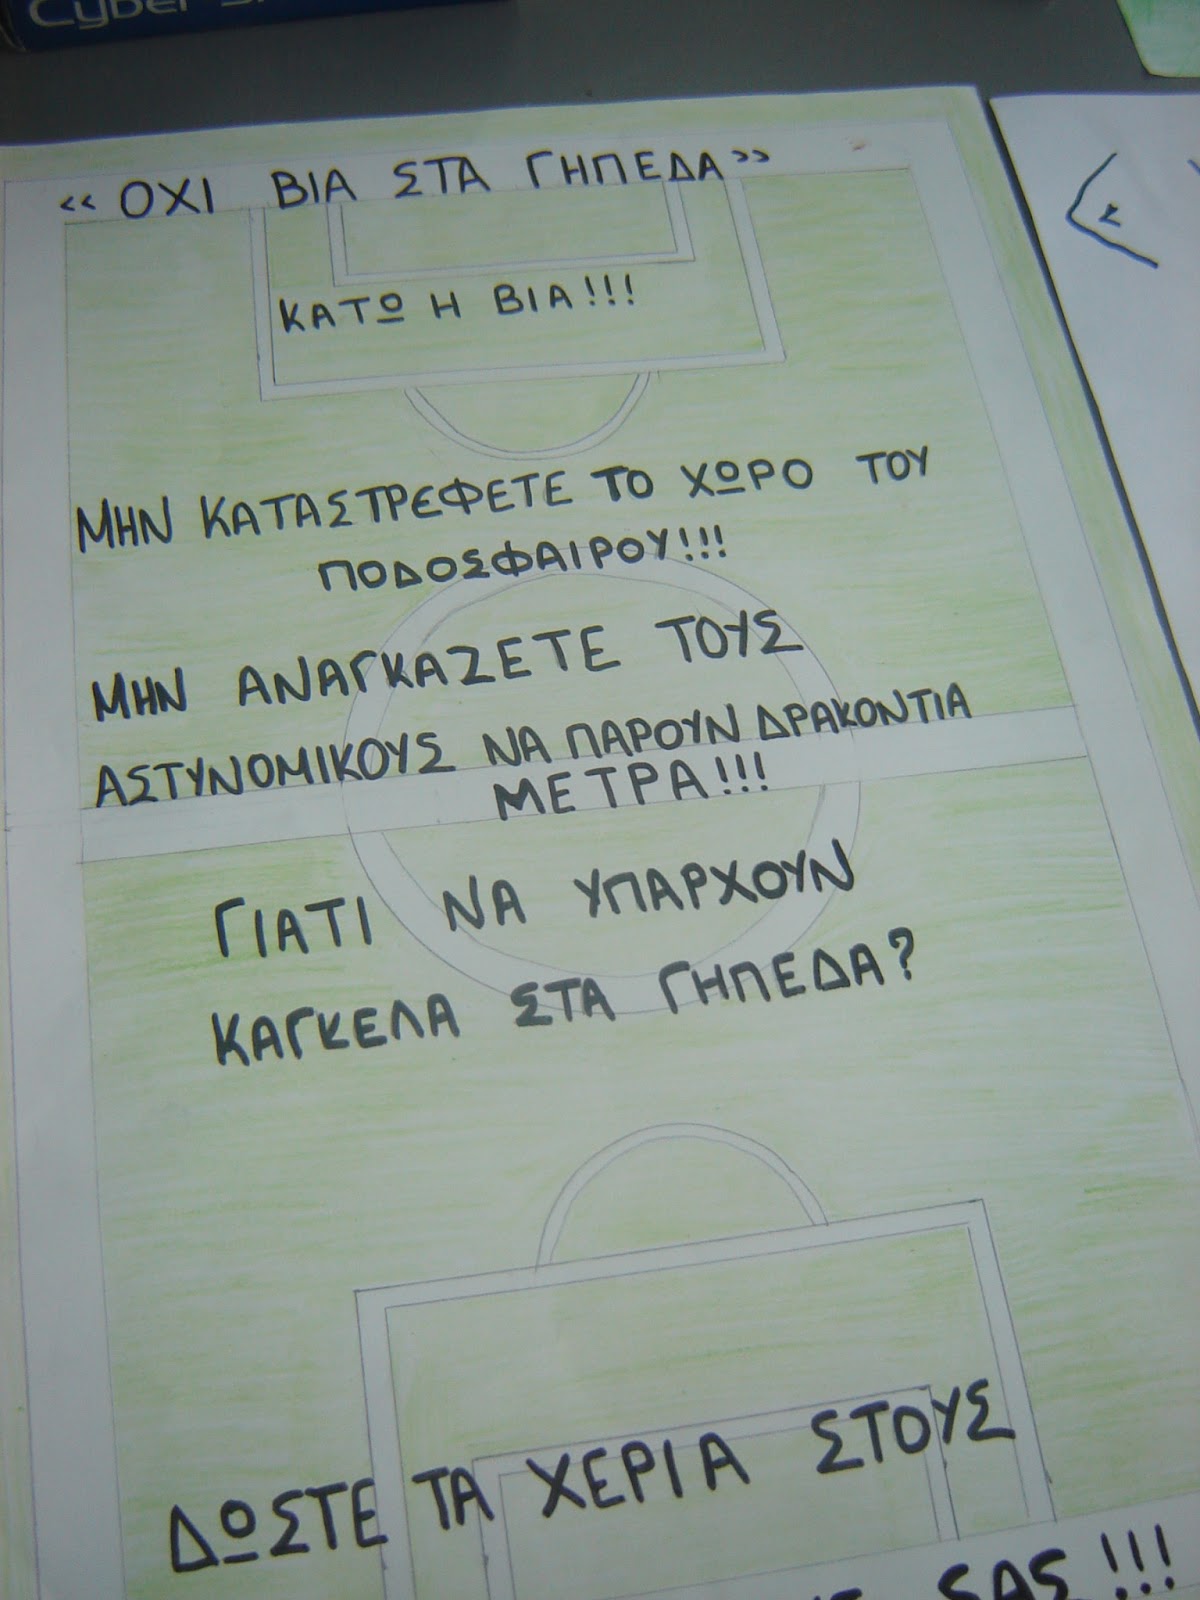 Cyber
« ΟΧΙ ΒΙΑ ΣΤΑ ΓΗΠΕΔΑ »
ΚΑΤΩ Η ΒΙΑ!!!
ΜΗΝ ΚΑΤΑΣΤΡΕΦΕΤΕ ΤΟ ΧΩΡΟ ΤΟΥ
ΠΟΔΟΣΦΑΙΡΟΥ!!!
ΜΗΝ ΑΝΑΓΚΑΖΕΤΕ ΤΟΥΣ
ΑΣΤΥΝΟΜΙΚΟΥΣ ΝΑ ΠΑΡΟΥΝ ΔΡΑΚΟΝΤΙΑ
ΜΕΤΡΑ!!!
ΓΙΑΤΙ ΝΑ ΥΠΑΡΧΟΥΝ
ΚΑΓΚΕΛΑ ΣΤΑ ΓΗΠΕΔΑ?
ΔΩΣΤΕ ΤΑ ΧΕΡΙΑ ΣΤΟΥΣ
ΣΑΣ!!!